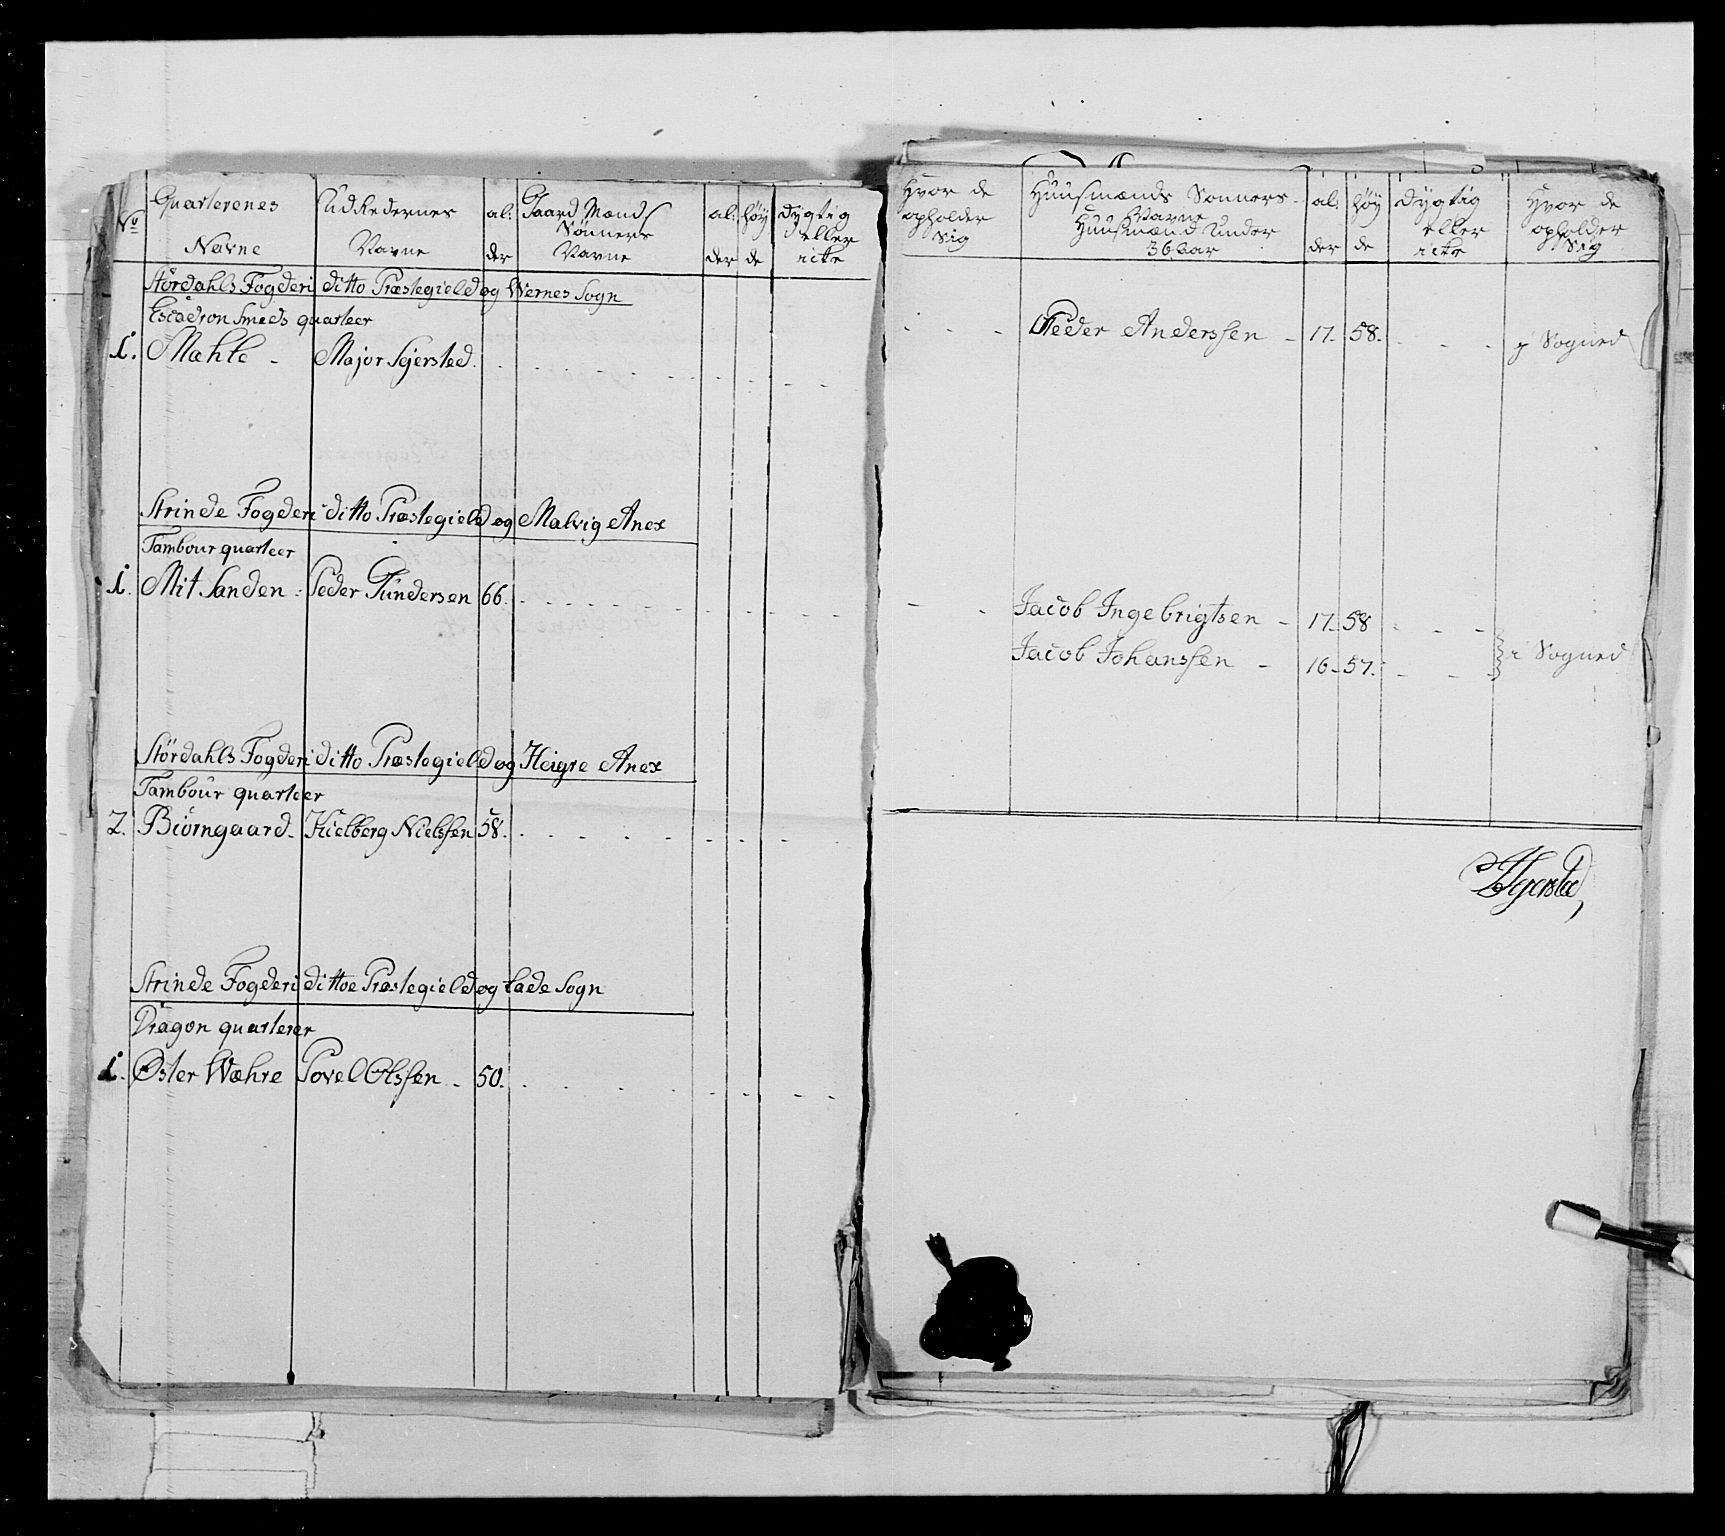 No
Quarterenes
Navne
Udredernes
Navne
al:
der
Gaard Mænds
Sønners
Navne
al:
der
høy
de
dygtig
eller
icke
Størdahls Fogderi ditto Præstegield og Wernes Sogn
Escadron Smeds quarteer
1. Mæhle - Major Sejersted.
Strinde Fogderi ditto Præstegield og Malvig Anex
Tambour quarteer
1. Mit Sanden - Peder Gundersen 66.
Størdahls Fogderi ditto Præstegield og Heigre Anex
Tambour quarteer
2. Biörngaard - Kielberg Nielssen 58.
Strinde Fogderi dittoe Præstegield og Lade Sogn
Dragon quarterer
1. Øster Wæhre Povel Olssen - 50.
Hvor de
opholder
Sig
Huusmænds Sønners
Navne
Huusmænd Under
36 aar
al.
der
høy
de
dygtig
eller
icke
Hvor de
opholder
Sig
Peder Anderssen - 17. 58. i Sogned
Jacob Ingebrigtsen - 17. 58
Jacob Johanssen - 16. 57. i Sogned
Sejersted